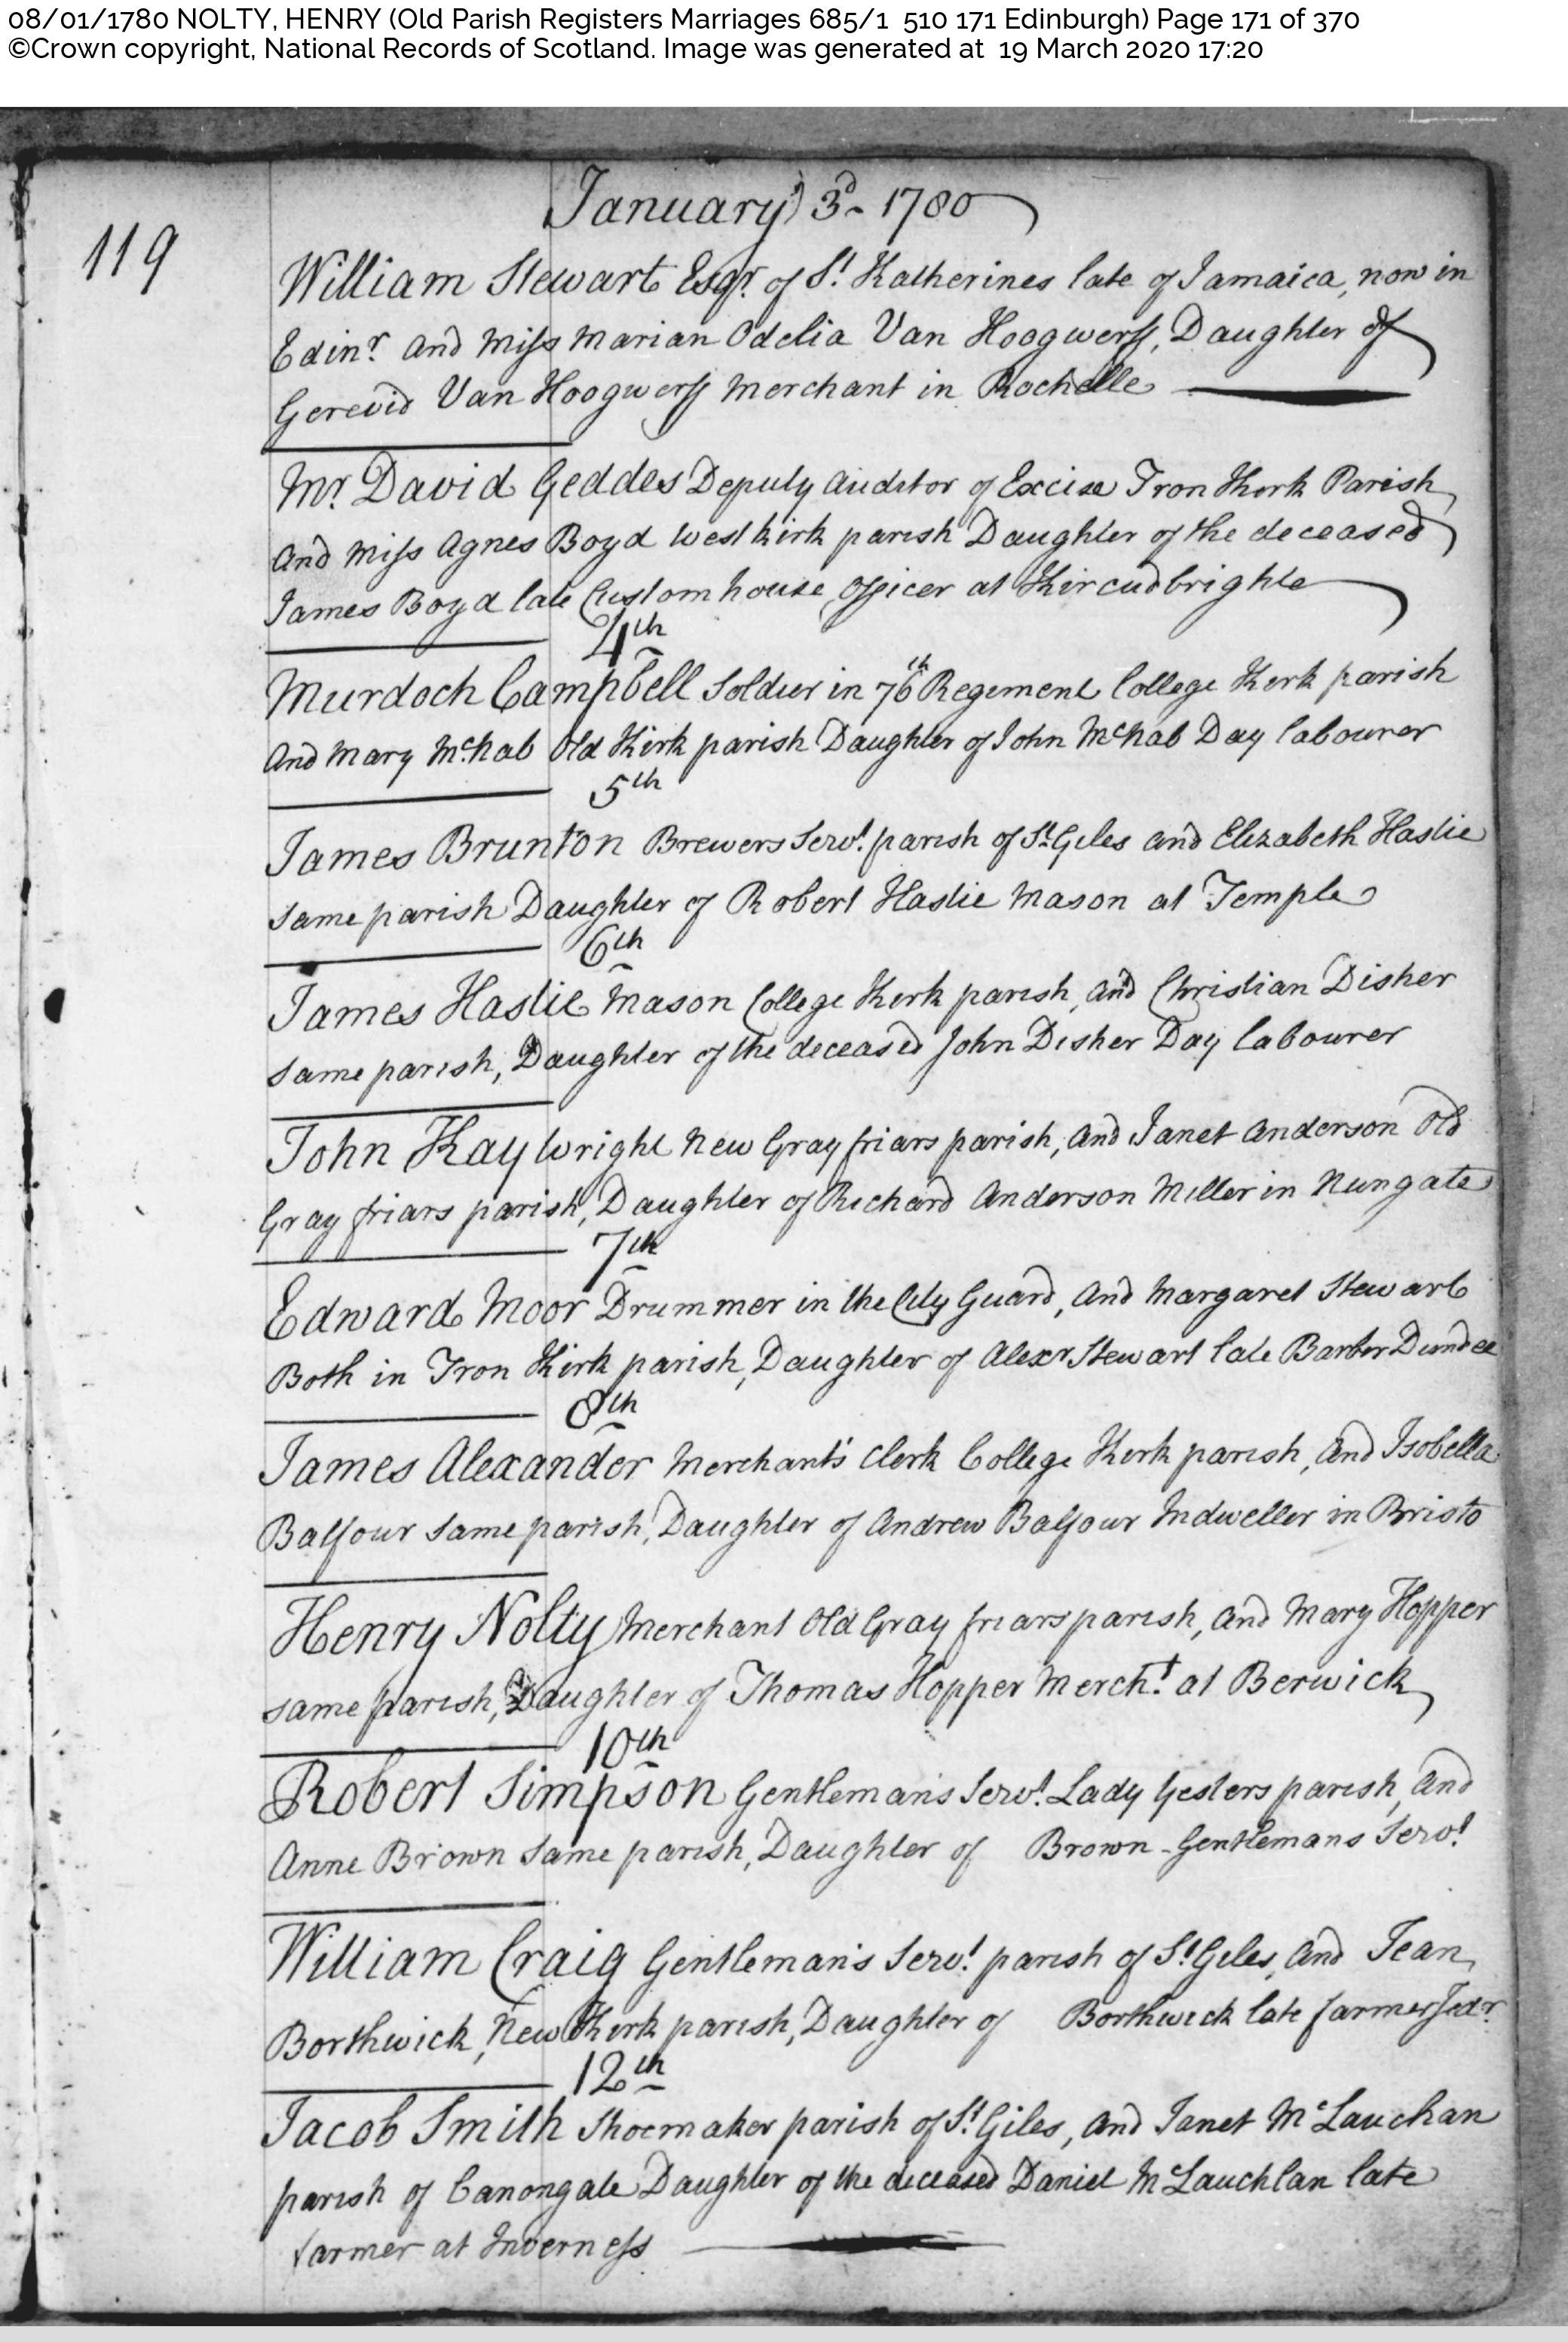 08/01/1780 NOLTY, HENRY (Old Parish Registers Marriages 685/1 510 171 Edinburgh) Page 171 of 370
©Crown copyright, National Records of Scotland. Image was generated at 19 March 2020 17:20
January 3d 1780
119
William Stewart Esqr. of St. Katherines late of Jamaica, now in
Edinr. And Miss Marian Odelia Van Hoogwerff, Daughter of
Gerevid Van Hoogwerff Merchant in Rochelle
Mr. David Geddes Deputy Auditor of Excise Tron Kirk Parish
And Miss Agnes Boyd West kirk parish Daughter of the deceased
James Boyd late Custom house Officer at Kircudbrighte
4th
Murdoch Campbell Soldier in 76th Regement College Kirk parish
And Mary McNab Old Kirk parish Daughter of John McNab Day labourer
5th
James Brunton Brewers Servt. parish of St. Giles and Elizabeth Haslie
same parish Daughter of Robert Haslie Mason at Temple
6th
James Haslie Mason College Kirk parish, and Christian Disher
same parish, Daughter of the deceased John Disher Day labourer
John Kay Wright New Gray friars parish, and Janet Anderson Old
Gray friars parish, Daughter of Richard Anderson Miller in Nungate
7th
Edward Moor Drummer in the City Guard, And Margaret Stewart
Both in Tron Kirk parish, Daughter of Alexr. Stewart late Barber Dundee
8th
James Alexander Merchant's Clerk College Kirk parish, and Isobella
Balfour same parish, Daughter of Andrew Balfour Indweller in Bristo
Henry Nolty Merchant Old Gray friars parish, and Mary Hopper
same parish, Daughter of Thomas Hopper Mercht. at Berwick
10th
Robert Simpson Gentleman's Servt. Lady Yesters parish, and
Anne Brown same parish, Daughter of Brown - Gentlemans Servt.
William Craig Gentleman's Servt. parish of St. Giles, and Jean
Borthwick, New Kirk parish, Daughter of Borthwick late farmer Jedr.
12th
Jacob Smith Shoemaker parish of St. Giles, and Janet McLauchan
parish of Canongate Daughter of the deceased Daniel McLauchlan late
farmer at Inverness